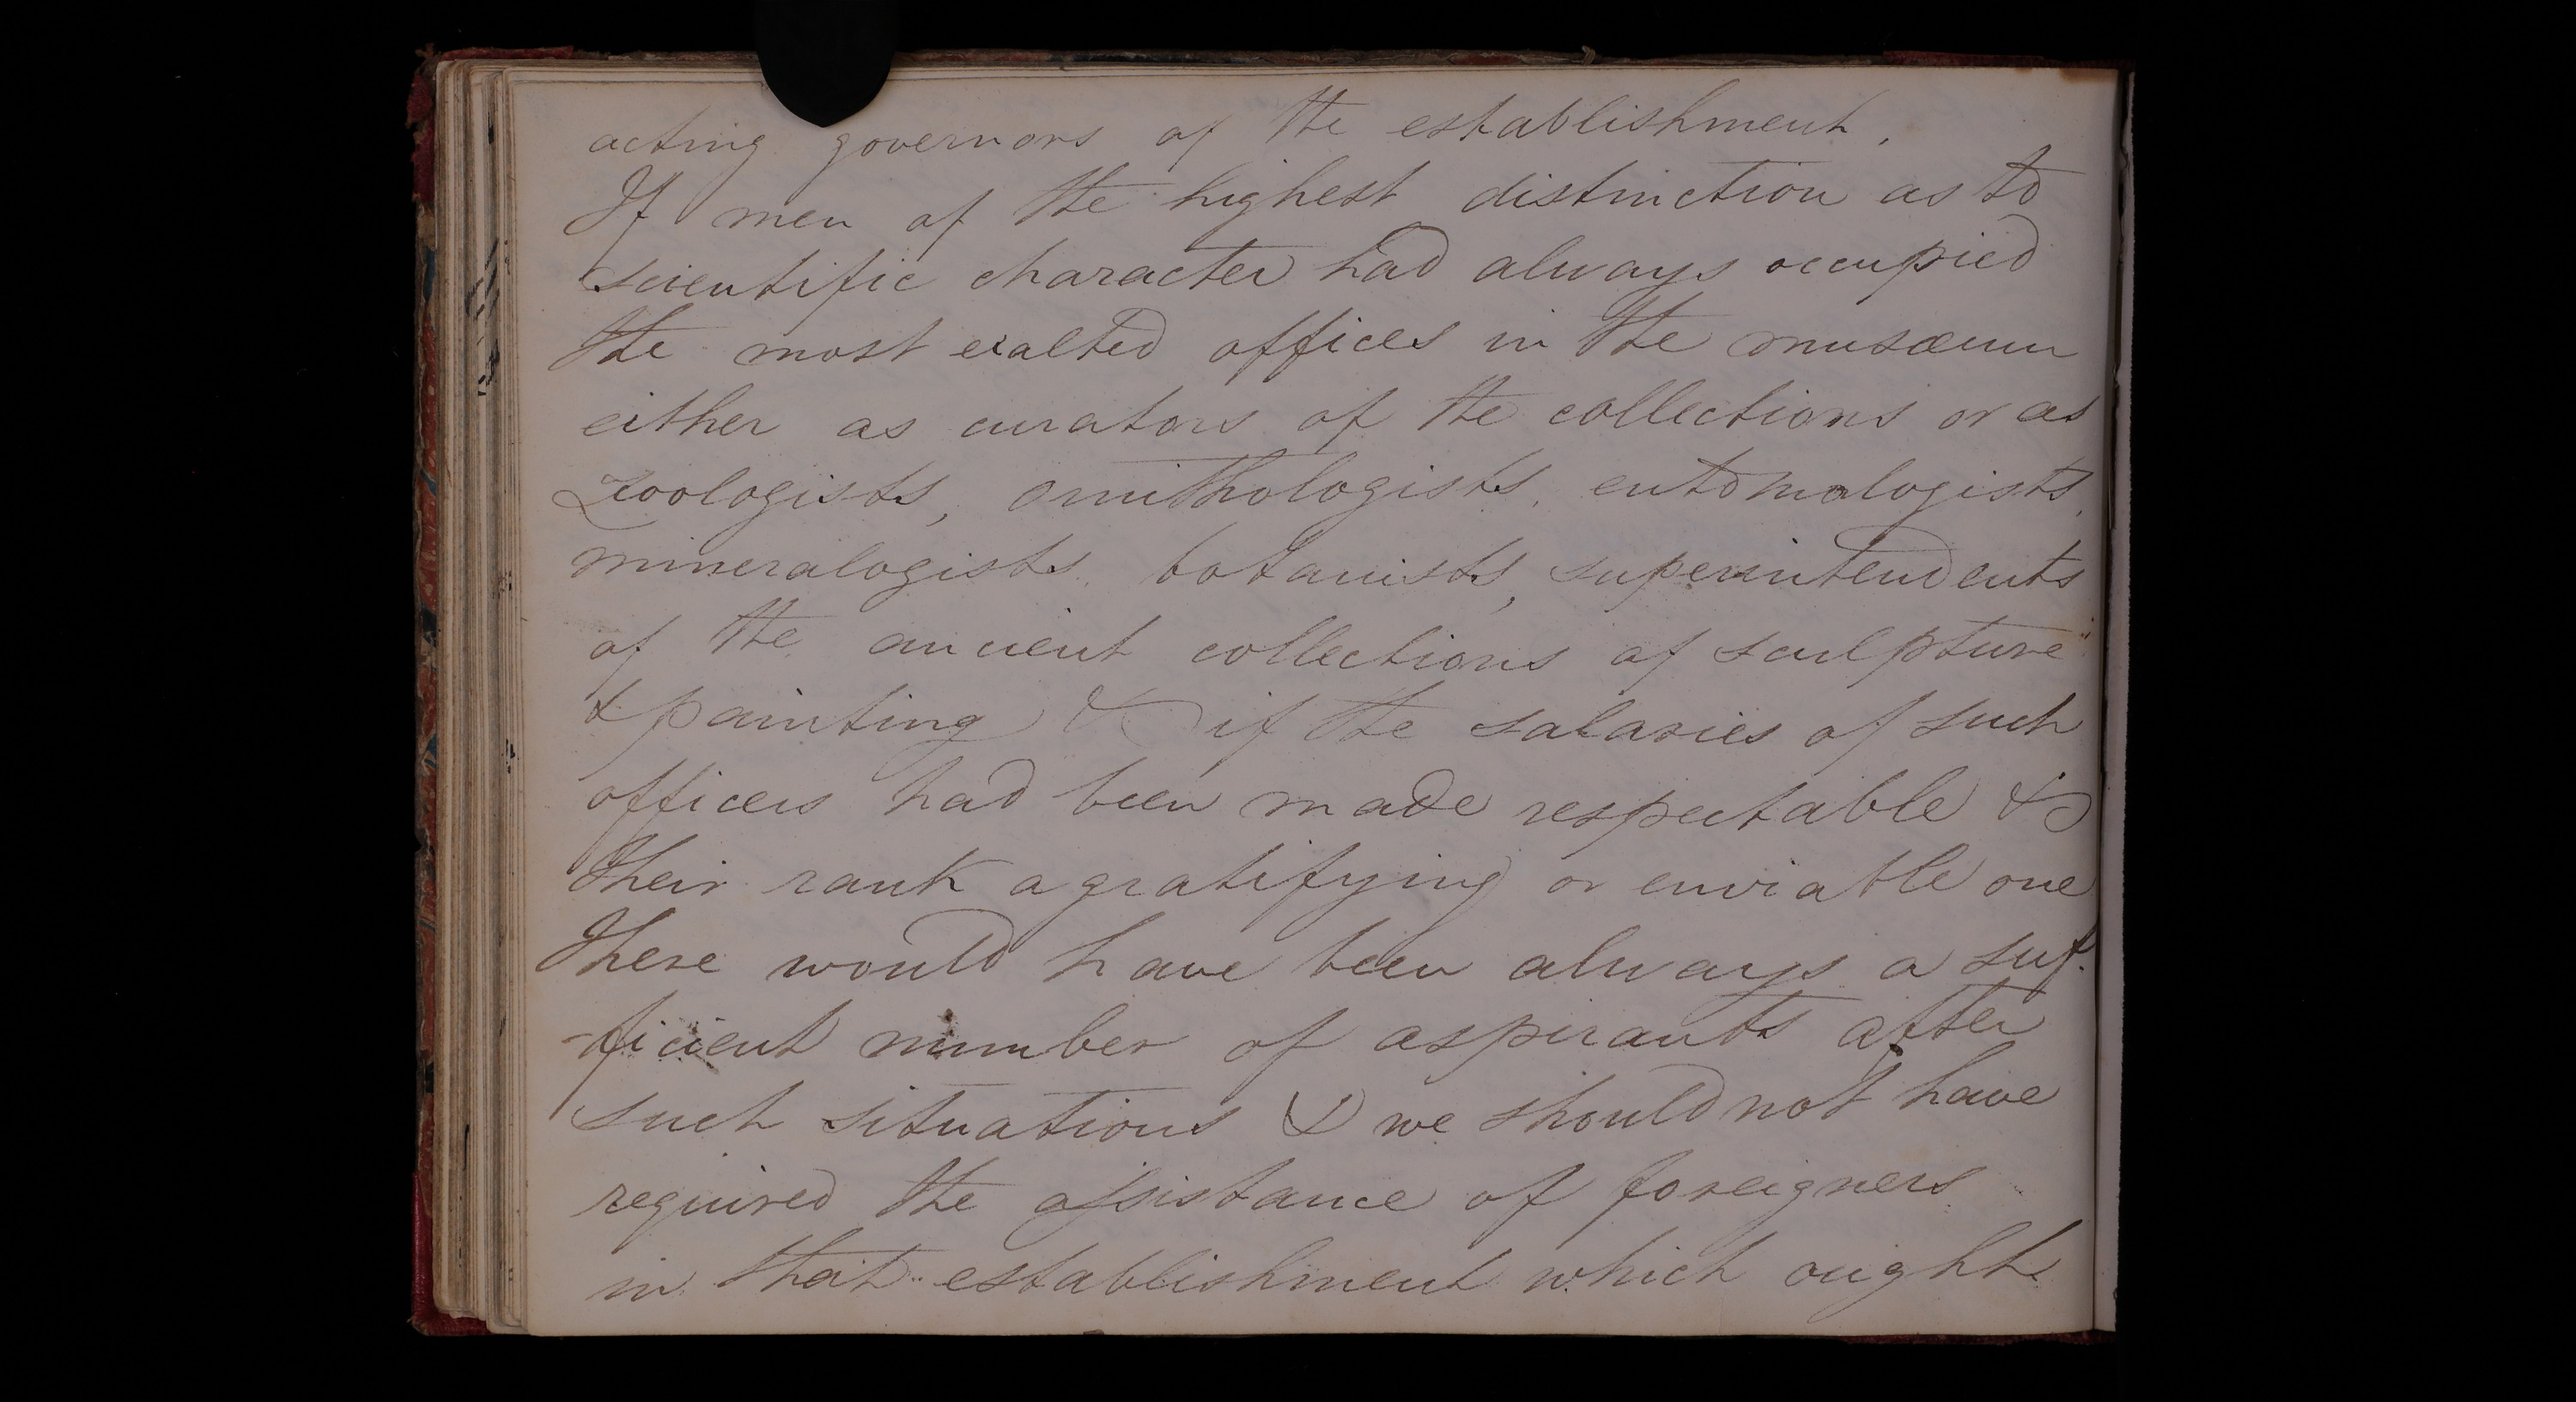 acting governors of the establishment.
If men of the highest distinction as to
scientific character had always occupied
the most exalted offices in the musæum
either as curators of the collections or as
zoologists, ornithologists, entomologists,
mineralogists, botanists, superintendents
of the ancient collections of sculpture
& painting & if the salaries of such
officers had been made respectable &
their rank a gratifying or enviable one
there would have been always a suf-
-ficient number of aspirants after
such situations & we should not have
required the assistance of foreigners
in that establishment which ought